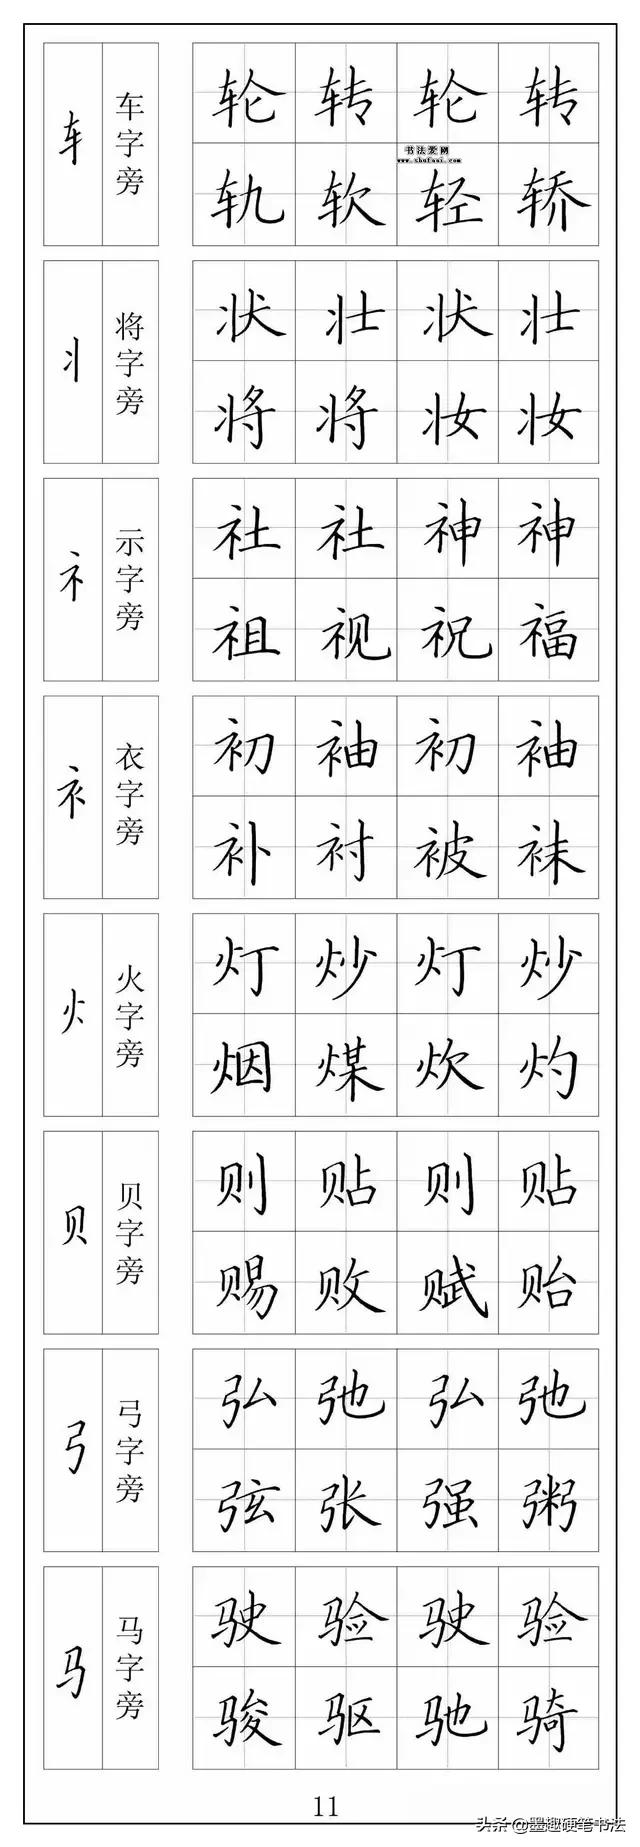 车 车字旁 轮 转 轮 转
书法爱网
www.shufaai.com
轨 软 轻 轿
丬 将字旁 状 壮 状 壮
将 将 妆 妆
礻 示字旁 社 社 神 神
祖 视 祝 福
衤 衣字旁 初 袖 初 袖
补 衬 被 袜
火 火字旁 灯 炒 灯 炒
烟 煤 炊 灼
贝 贝字旁 则 贴 则 贴
赐 败 赋 贻
弓 弓字旁 弘 弛 弘 弛
弦 张 强 粥
马 马字旁 驶 验 驶 验
骏 驱 驰 骑
11
头条@墨趣硬笔书法